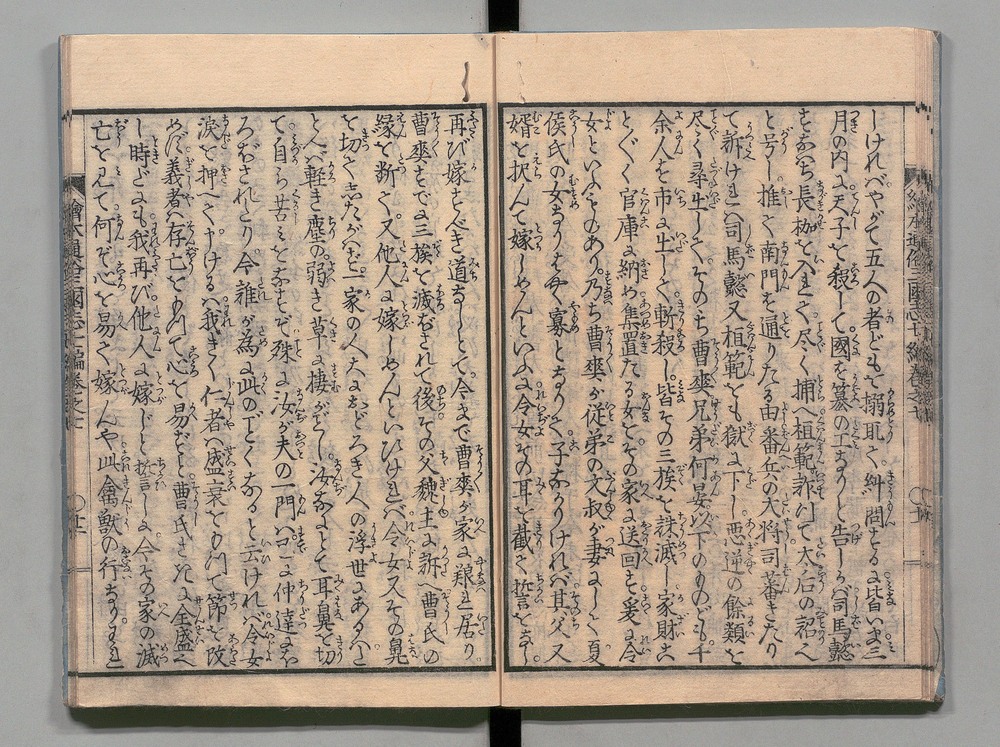 しければやがて五人の者どもを搦取て糾問せるに皆いま三
月の内に天子を殺して國を簒の工ありと告しかば司馬懿
すなはち長枷を入さて尽く捕へ桓範詐りて太后の詔へ
と号し推て南門を通りたる由番兵の大将司蕃きたり
て訴ければ司馬懿又桓範をも獄に下し悪逆の餘類を
尽く尋出してそのち曹爽兄弟何晏以下のものども千
余人を市に出して斬殺し皆その三族を誅滅し家財は
とく〳〵官庫に納め集置たる女をその家に送回す爰に令
女といふものあり乃ち曹爽が従弟の文叔が妻にして夏
侯氏の女なりはやく寡となりて子なかりければ其父又
婿を択んで嫁しめんといふに令女その耳を截て誓をなし
再び嫁すべき道なしとて今まで曹爽が家に頼れ居り
曹爽すでに三族を滅ぼされて後その父魏主に訴へ曹氏の
縁を断て又他人に嫁しめんといひければ令女又その鼻
を切てしたがはず一家の人大におどろき人の浮世にあるこ
と人は軽き塵の弱き草に棲がごとし汝なにとて耳鼻を切
て自ら苦みをなすぞ殊に汝が夫の一門はみな仲達に
ろぼされたり今誰が為に此のごとくなると云ければ令女
涙を押へて申けるは我きく仁者は盛衰をもつて節を改
めず義者は存亡をもつて心を易ずと曹氏さきに全盛
し時だにも我再び他人に嫁じと誓しに今その家の滅
亡を見て何ぞ心を易て嫁んや此禽獣の行なり
繪本通俗三國志七編巻之七